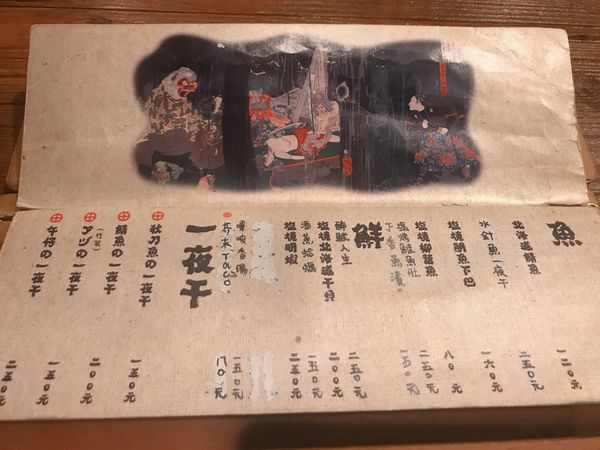 魚
一二〇元
二五〇元
水針魚一夜干
一六〇元
塩燒明魚下巴
八〇元
塩燒柳葉魚
二五〇元
塩烤鮭魚肚
一五〇元
子香魚漬
鮮
醉蝦人生
二五〇元
塩燒北海道干貝
二〇〇元
酒蒸蛤蠣
一五〇元
塩燒明蝦
二五〇元
香腸
一五〇元
芥末TORO
八〇元
一夜干
秋刀魚の一夜干
一五〇元
鯖魚の一夜干
アジの一夜干
一五〇元
午仔の一夜干
二五〇元